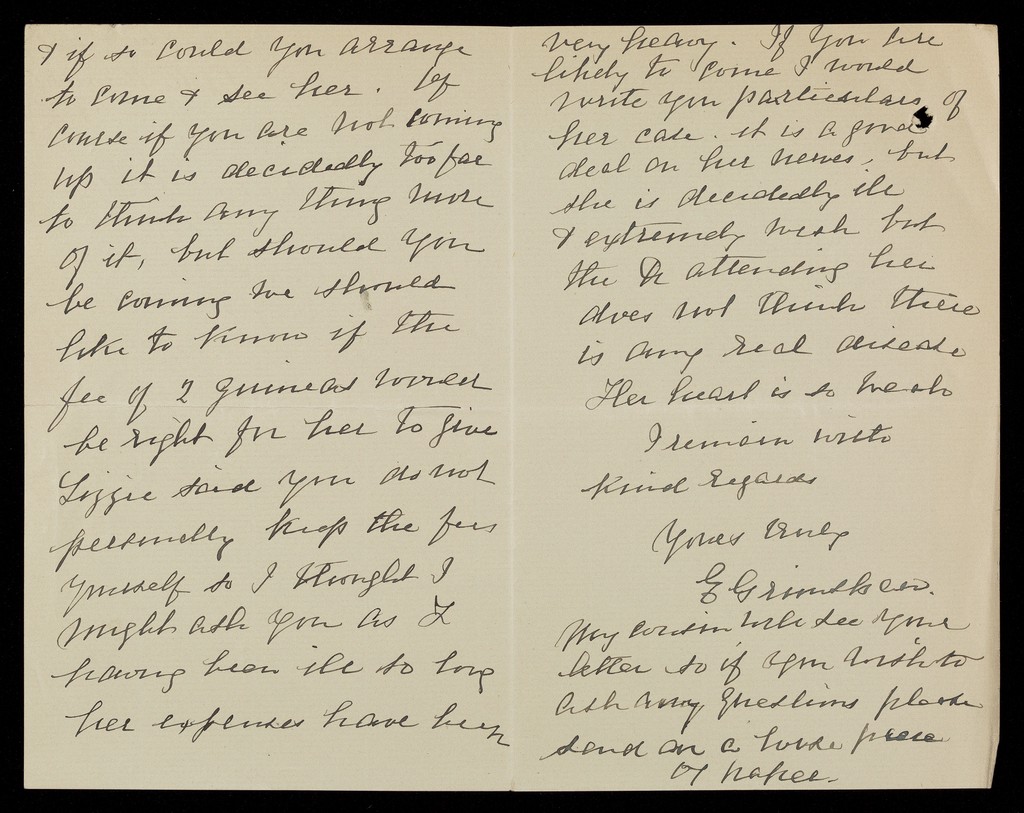 & if so could you arrange
to come & see her. Of
course if you are not coming
up it is decidedly too far
to think any thing more
of it, but should you
be coming we should
like to know if the
fee of 2 guineas would
be right for her to give
Lizzie said you do not
personally keep the fees
yourself so I thought I
might ask you as I
having been ill so long
her expenses have been
very heavy. If you are
likely to come I would
write you particulars of
her case. it is a good
deal on her nerves, but
she is decidedly ill
& extremely weak but
the Dr attending her
does not think there
is any real disease
Her heart is so weak
I remain with
kind regards
Yours truly
E
My cousin will see your
letter so if you wish to
ask any questions please
send on a loose piece
of paper.